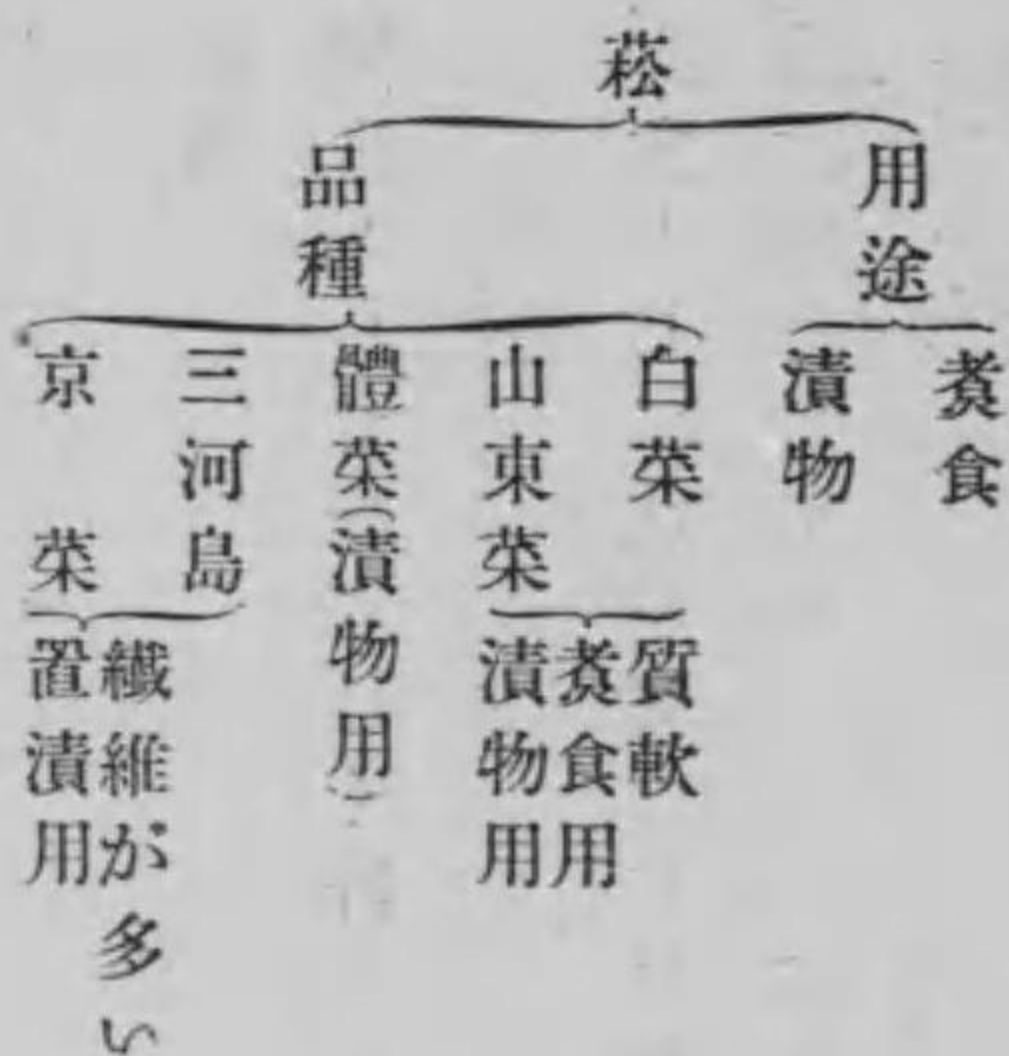 菘
用途
煑食
漬物
品種
白菜
山東菜
質軟
煑食用
漬物用
體菜(漬物用)
三河島
京菜
繊維が多い
置漬用